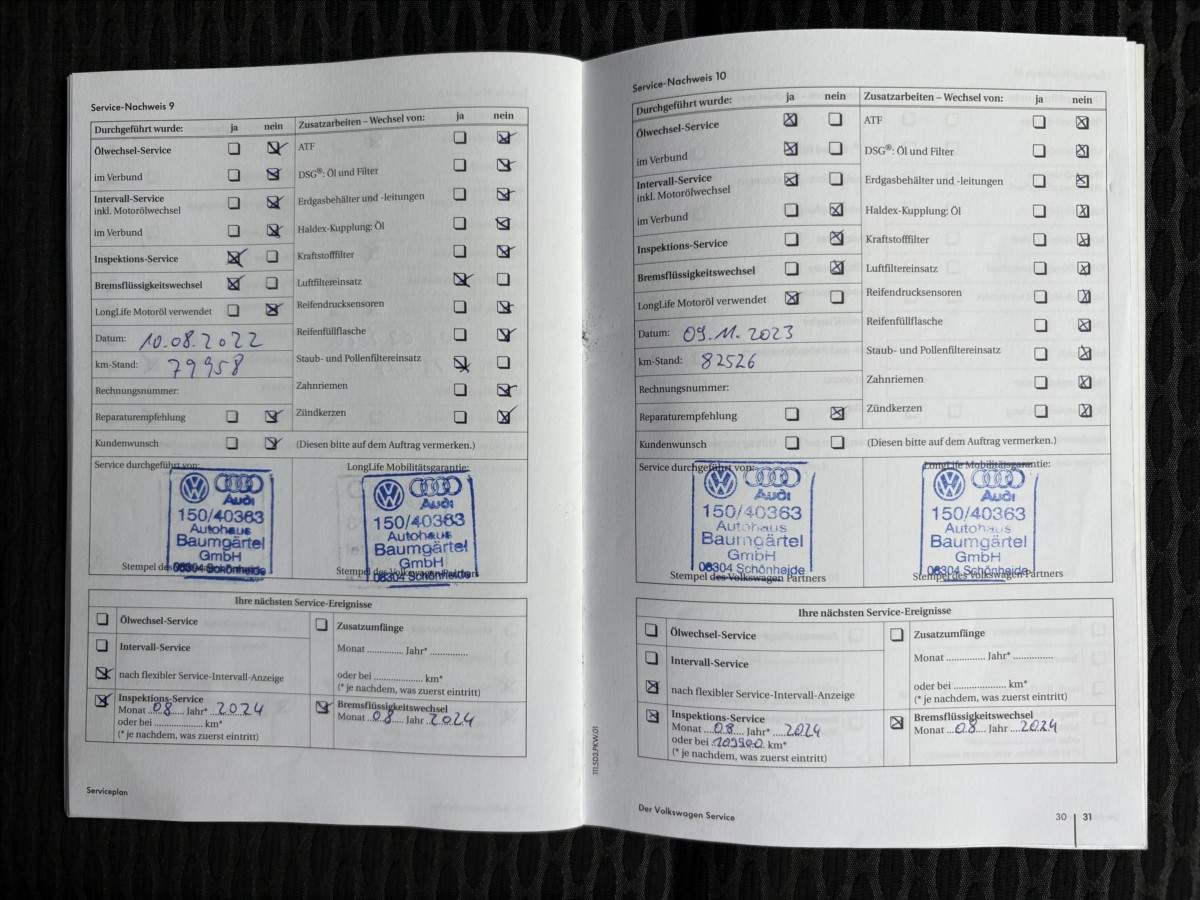 Service-Nachweis 9
Durchgeführt wurde: ja nein Zusatzarbeiten – Wechsel von: ja nein
Ölwechsel-Service ATF
im Verbund DSG®: Öl und Filter
Intervall-Service
inkl. Motorölwechsel Erdgasbehälter und -leitungen
im Verbund Haldex-Kupplung: Öl
Inspektions-Service Kraftstofffilter
Bremsflüssigkeitswechsel Luftfiltereinsatz
LongLife Motoröl verwendet Reifendrucksensoren
Datum: 10.08.2022 Reifenfüllflasche
km-Stand: 79958 Staub- und Pollenfiltereinsatz
Rechnungsnummer: Zahnriemen
Reparaturempfehlung Zündkerzen
Kundenwunsch (Diesen bitte auf dem Auftrag vermerken.)
Service durchgeführt von: LongLife Mobilitätsgarantie:
Audi Audi
150/40363 150/40363
Autohaus Autohaus
Baumgärtel Baumgärtel
GmbH GmbH
08304 Schönheide 08304 Schönheide
Stempel des Stempel des Volkswagen Partners
Ihre nächsten Service-Ereignisse
Ölwechsel-Service Zusatzumfänge
Intervall-Service Monat ............. Jahr* .............
nach flexibler Service-Intervall-Anzeige oder bei .................... km*
(* je nachdem, was zuerst eintritt)
Inspektions-Service Bremsflüssigkeitswechsel
Monat 08 Jahr* 2024 Monat 08 Jahr 2024
oder bei .................... km*
(* je nachdem, was zuerst eintritt)
Serviceplan
111.5D3.PKW.01
Service-Nachweis 10
Durchgeführt wurde: ja nein Zusatzarbeiten – Wechsel von: ja nein
Ölwechsel-Service ATF
im Verbund DSG®: Öl und Filter
Intervall-Service
inkl. Motorölwechsel Erdgasbehälter und -leitungen
im Verbund Haldex-Kupplung: Öl
Inspektions-Service Kraftstofffilter
Bremsflüssigkeitswechsel Luftfiltereinsatz
LongLife Motoröl verwendet Reifendrucksensoren
Datum: 09.11.2023 Reifenfüllflasche
km-Stand: 82526 Staub- und Pollenfiltereinsatz
Rechnungsnummer: Zahnriemen
Reparaturempfehlung Zündkerzen
Kundenwunsch (Diesen bitte auf dem Auftrag vermerken.)
Service durchgeführt von: LongLife Mobilitätsgarantie:
Audi Audi
150/40363 150/40363
Autohaus Autohaus
Baumgärtel Baumgärtel
GmbH GmbH
08304 Schönheide 08304 Schönheide
Stempel des Volkswagen Partners Stempel des Volkswagen Partners
Ihre nächsten Service-Ereignisse
Ölwechsel-Service Zusatzumfänge
Intervall-Service Monat ............. Jahr* .............
nach flexibler Service-Intervall-Anzeige oder bei .................... km*
(* je nachdem, was zuerst eintritt)
Inspektions-Service Bremsflüssigkeitswechsel
Monat 08 Jahr* 2024 Monat 08 Jahr 2024
oder bei 109900 km*
(* je nachdem, was zuerst eintritt)
Der Volkswagen Service 30 31